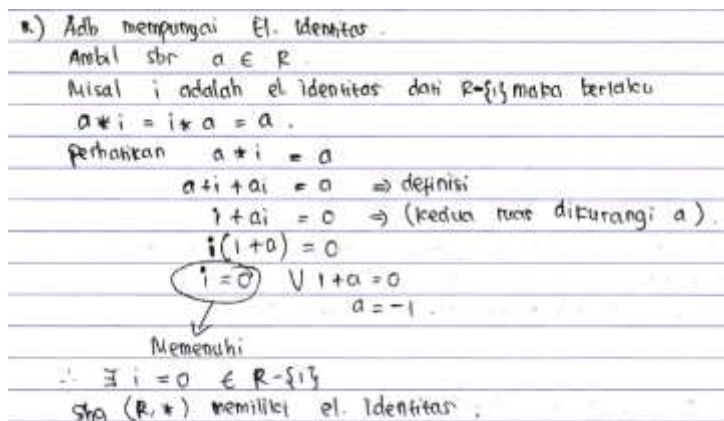 *) Adb mempunyai El. Identitas.
Ambil sbr a ∈ R
Misal i adalah el identitas dari R-{1} maka berlaku
a * i = i * a = a.
perhatikan a * i = a
a+i + ai = a ⇒ definisi
i + ai = 0 ⇒ (kedua ruas dikurangi a).
i(1+a) = 0
i = 0 V 1+a = 0
a = -1.
Memenuhi
∴ ∃ i = 0 ∈ R-{1}
shg (R,*) memiliki el. Identitas.